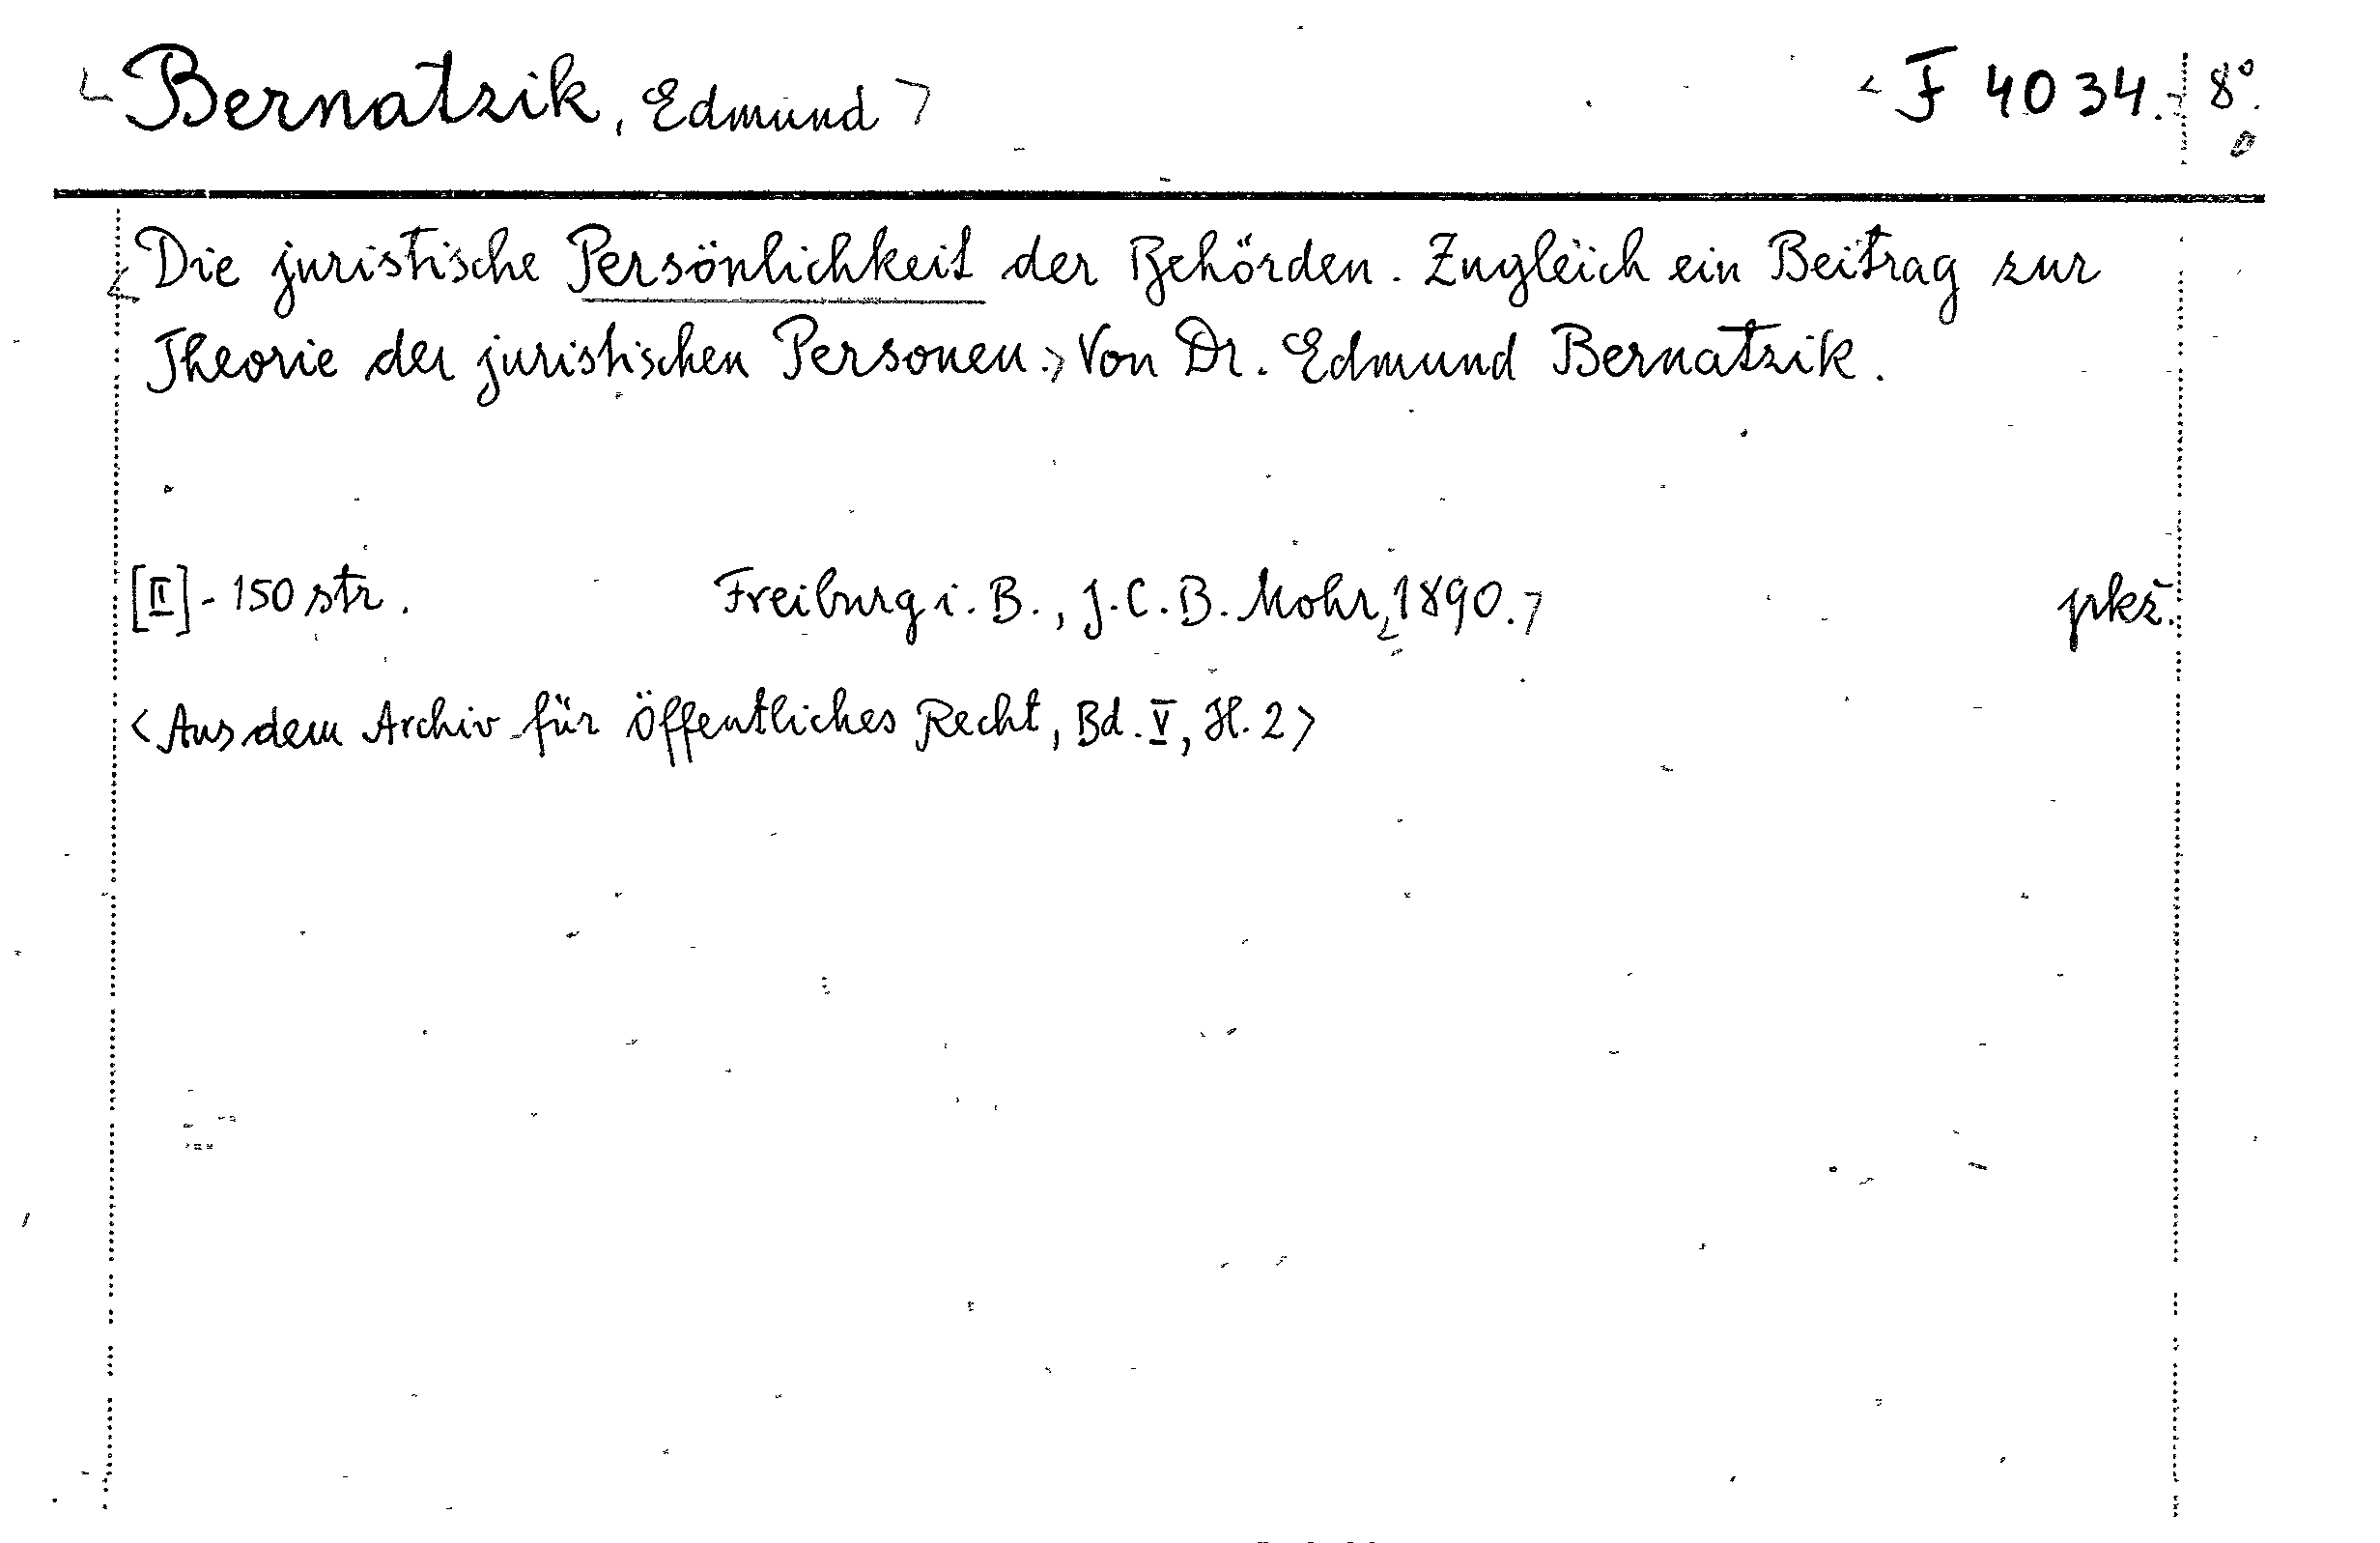 <Bernatzik, Edmund> <F 4034.> 8°.
<Die juristische Persönlichkeit der Behörden. Zugleich ein Beitrag zur
Theorie der juristischen Personen.> Von Dr. Edmund Bernatzik.
[II] - 150 str. Freiburg i. B., J. C. B. Mohr, <1890.> pkž.
<Aus dem Archiv für öffentliches Recht, Bd. V, H. 2>